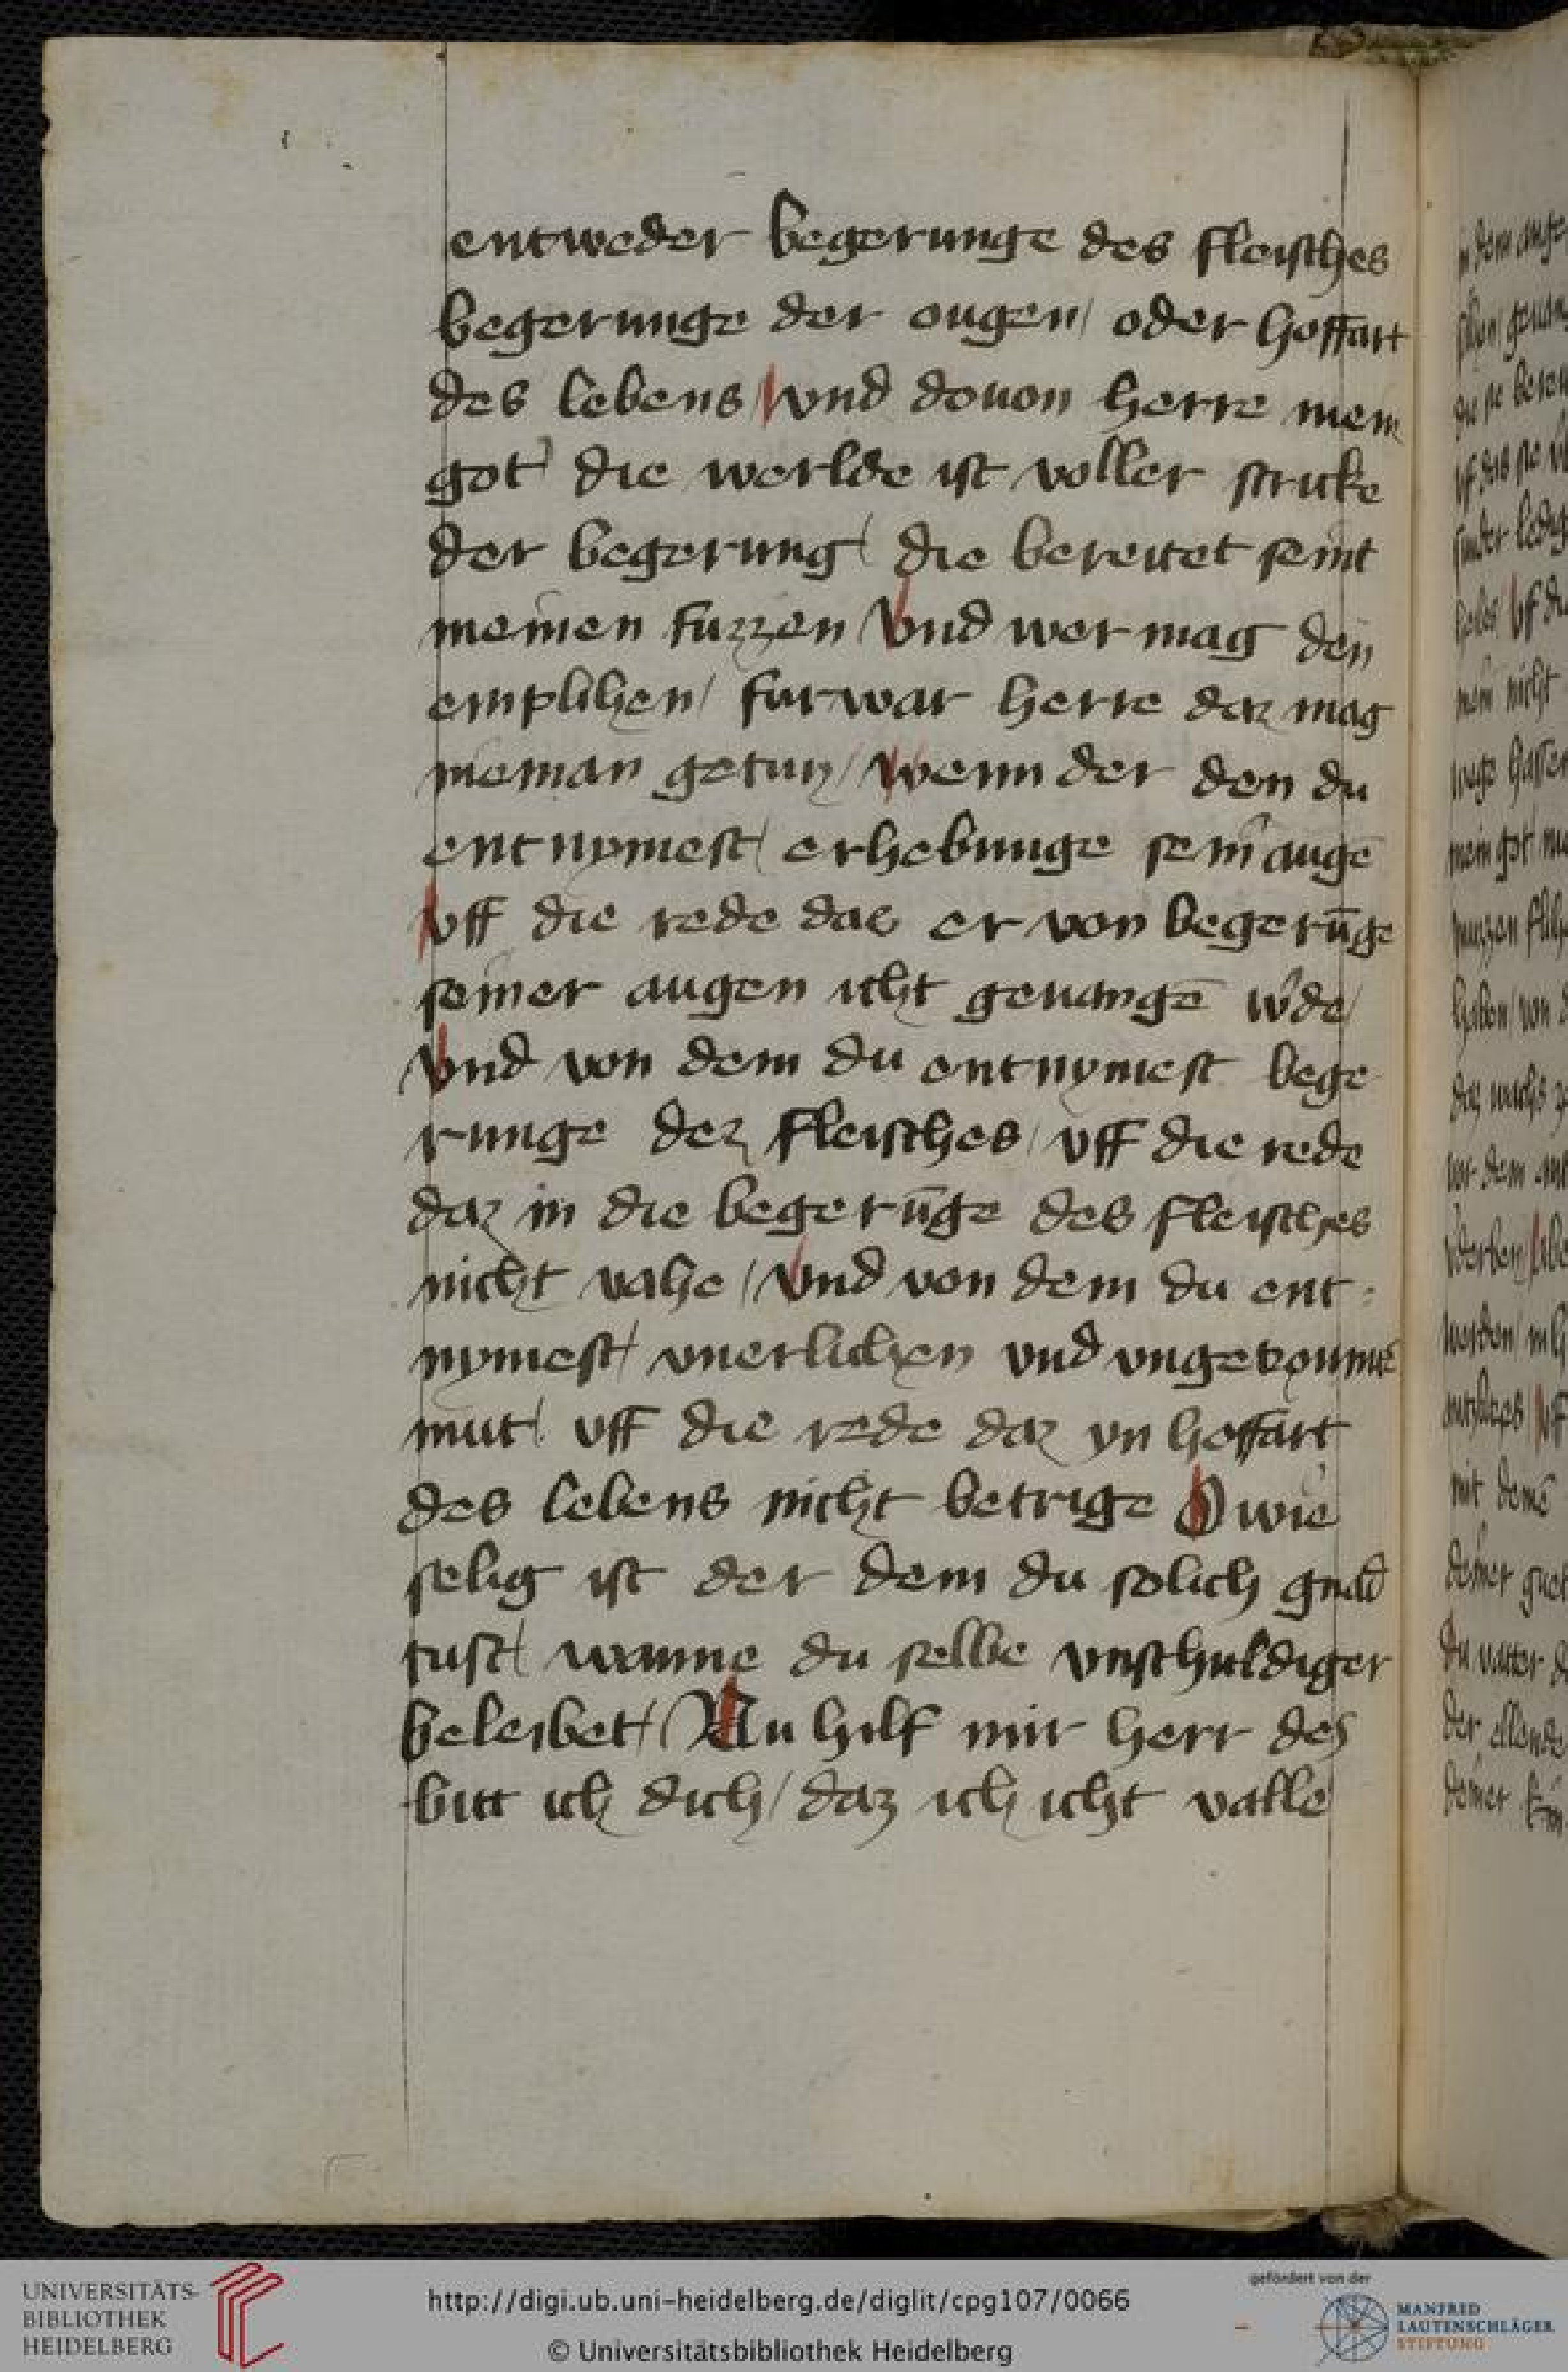 entweder begerunge des fleisches
begerunge der ougen/ oder hoffart
des lebens/ vnd douon herre mein
got die werlde ist voller stricke
der begerung/ die bereitet seint
meinen fuzzen Vnd wer mag den
empflihen/ furwar herre daz mag
nieman getun/ wenn der den du
entnymest/ erhebunge sein augē
vff die rede das er von begerūge
seiner augen icht geuangē w'de/
Vnd von dem du entnymest bege
runge dez fleisches/ vff die rede
daz in die begerūge des fleisches
nicht vahe/ Vnd von dem du ent
nymest/ vnerlichen vnd vngeczoumē
mut/ vff die rede daz yn hoffart
des lebens nicht betrige O wie
selig ist der dem du solich gnad
tust/ wanne du selbe vnschuldiger
beleibet/ Nu hilf mir herr des
bitt ich dich/ daz ich icht valle
UNIVERSITÄTS-
BIBLIOTHEK
HEIDELBERG
http://digi.ub.uni-heidelberg.de/diglit/cpg107/0066
© Universitätsbibliothek Heidelberg
gefördert von der
MANFRED
LAUTENSCHLÄGER
STIFTUNG